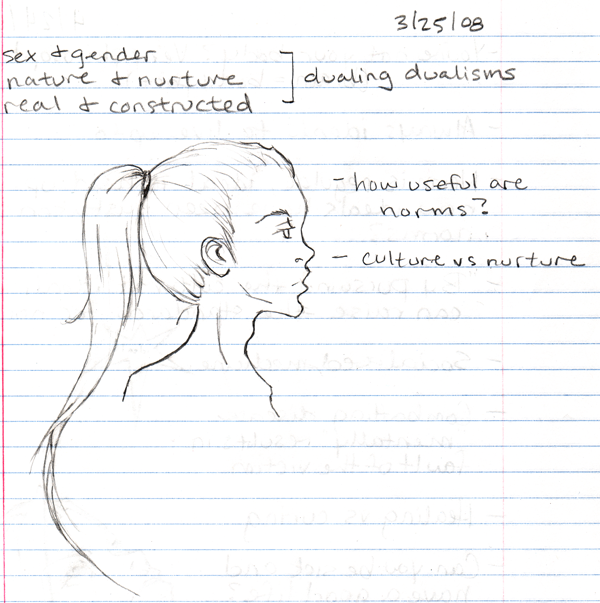 3/25/08
sex & gender
nature & nurture
real & constructed
dualing dualisms
- how useful are
norms?
- culture vs nurture